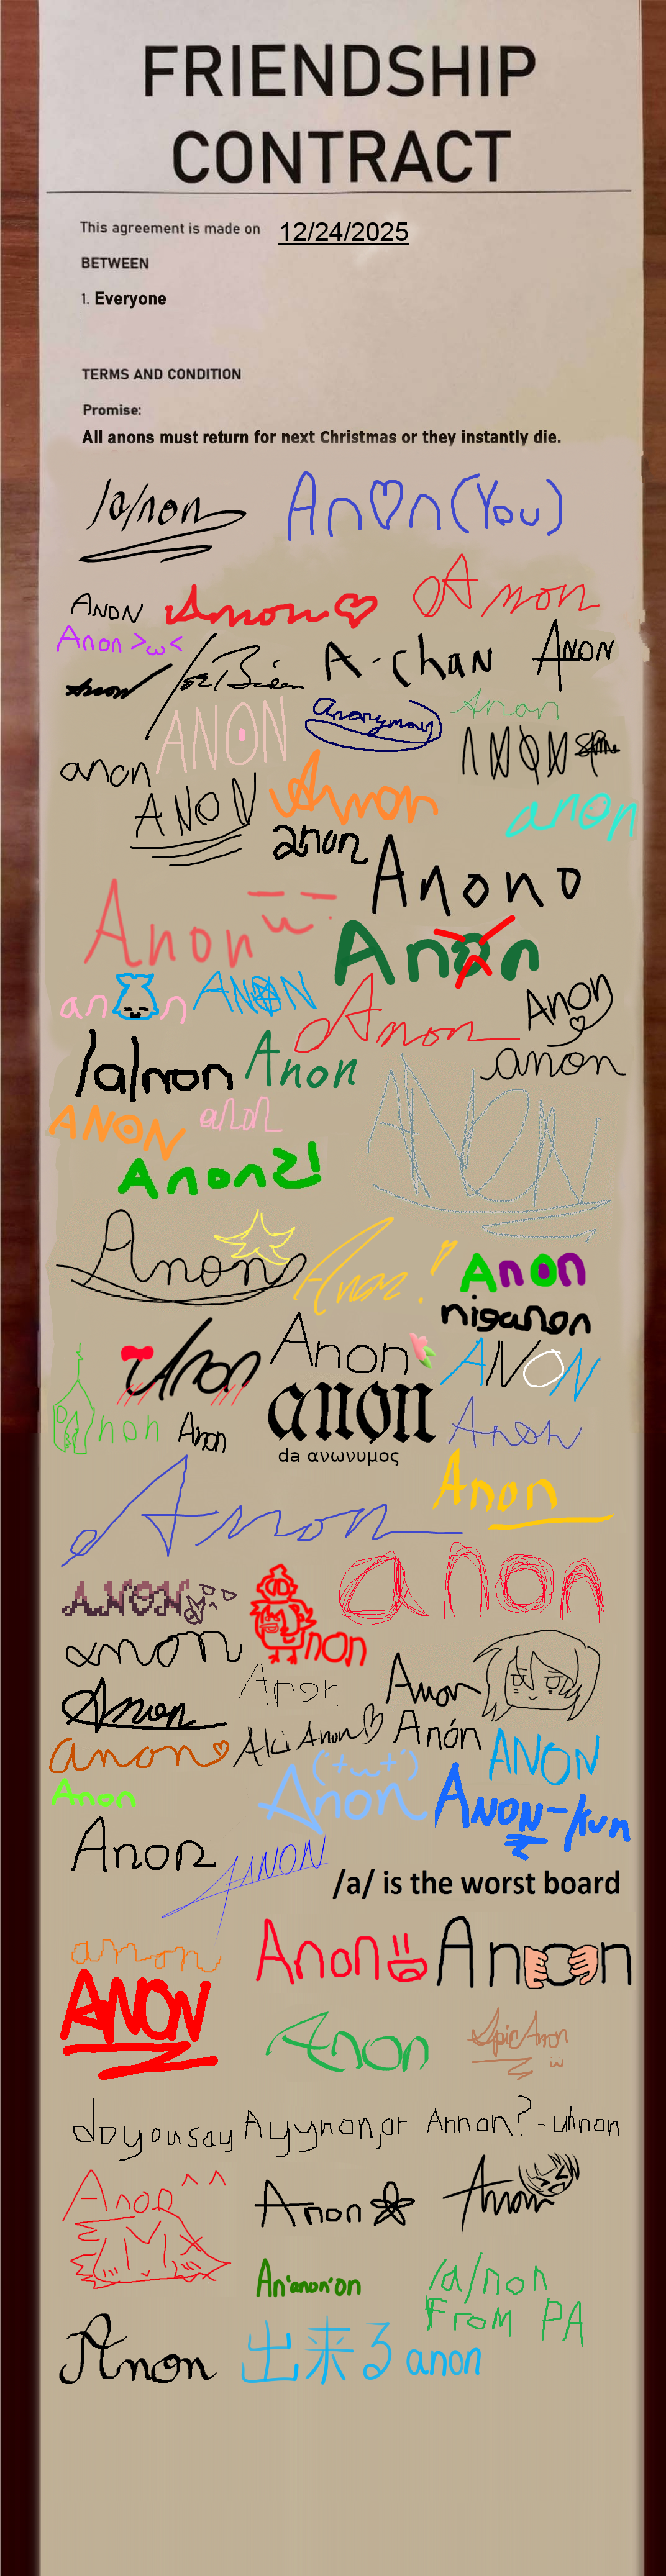 FRIENDSHIP
CONTRACT
This agreement is made on 12/24/2025
BETWEEN
1. Everyone
TERMS AND CONDITION
Promise:
All anons must return for next Christmas or they instantly die.
/a/non
An♡n (You)
ANON
Anon♡
Anon
Anon >ω<
Anon
Joe Biden
A-chan
ANON
ANON
Anonymous
Anon
anon
ANON
ANON
Anon
anon
anon
Anono
Anon
Anon
anon
ANON
Anon
Anon
/a/non
Anon
anon
ANON
anon
ANON
Anon2!
Anon
Anon!
Anon
niganon
Anon
Anon
ANON
Anon
Anon
anon
da ανωνυμος
Anon
Anon
Anon
ANON
non
anon
anon
Anon
Anon
Anon
Anon
anon♡
Aki Anon♡
Anón
ANON
Anon
Anon
('+ω+')
ANON-kun
Anon
ANON
/a/ is the worst board
anon
Anon
Anon
ANON
Anon
Epic Anon
ω
do you say Ayynon, or Annon? - Uhnon
Anon^^
Anon
Anon
An'anon'on
/a/non
From PA
Anon
出来る anon